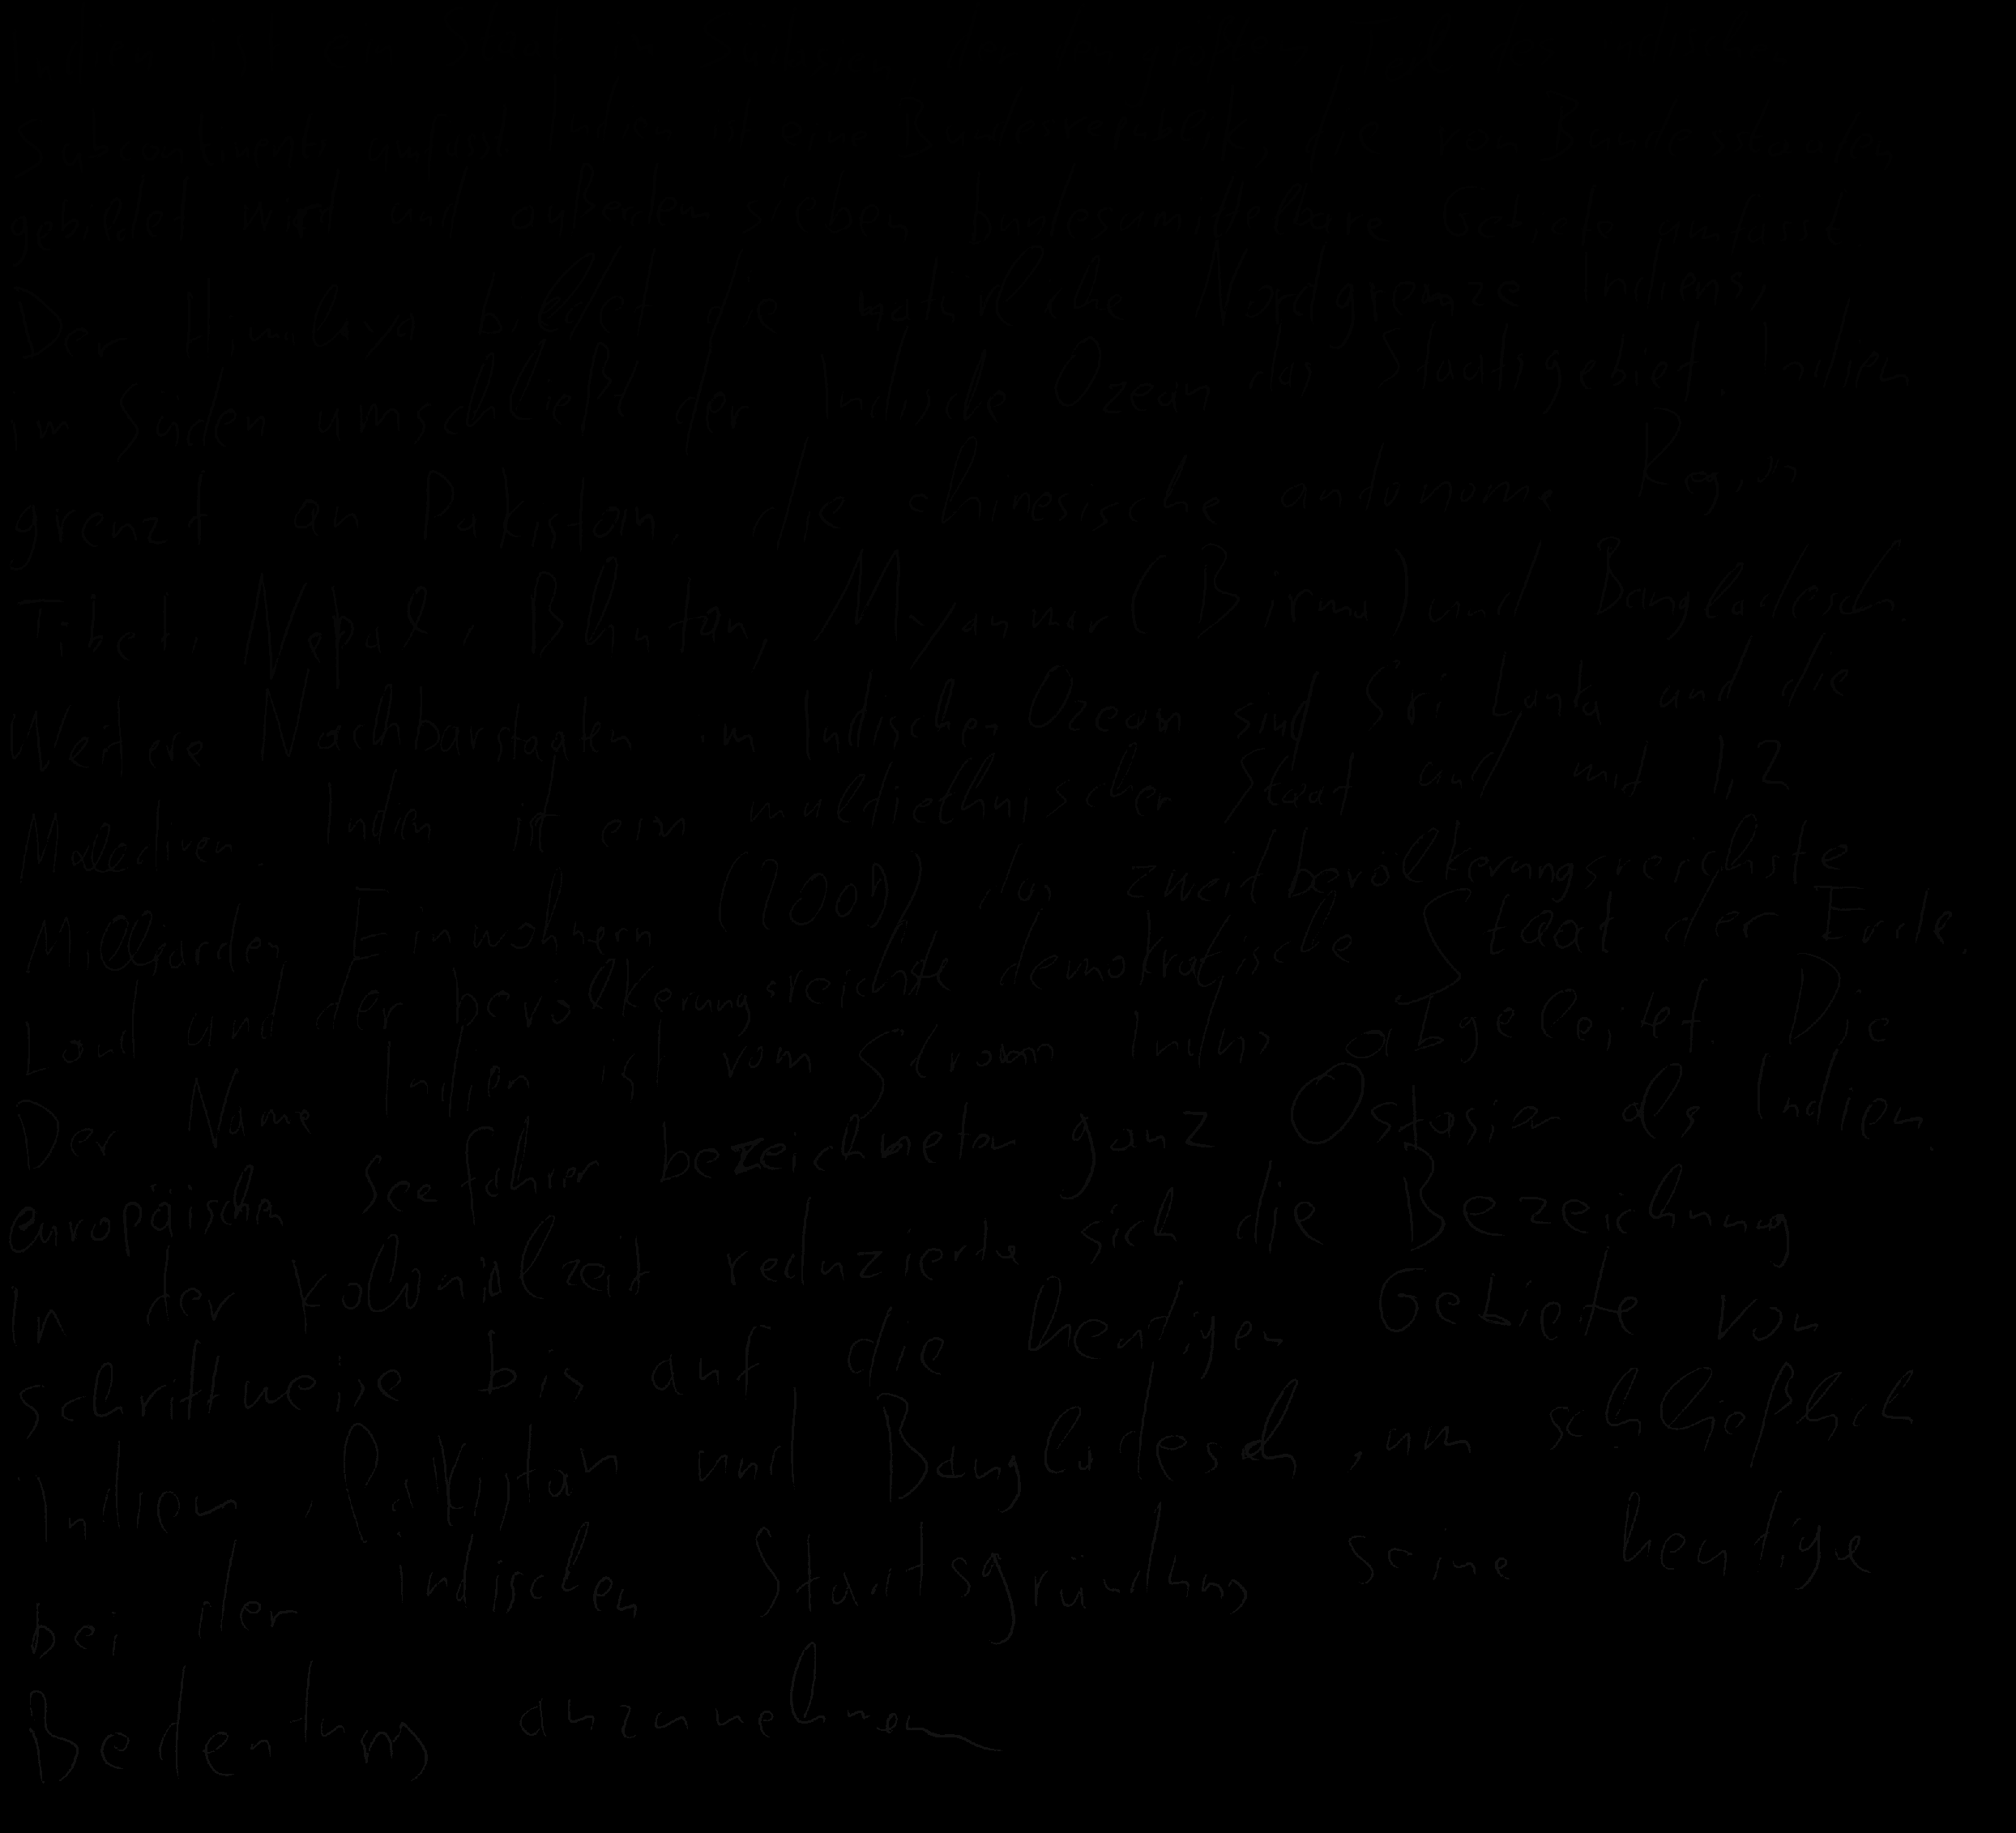 Subkontinents umfasst. Indien ist eine Bundesrepublik, die von Bundesstaaten
gebildet wird und außerdem sieben bundesunmittelbare Gebiete umfasst
Der Himalaya bildet die natürliche Nordgrenze Indiens,
im Süden umschließt der Indische Ozean das Staatsgebiet. Indien
grenzt an Pakistan, die chinesische autonome Region
Tibet, Nepal, Bhutan, Myanmar (Birma) und Bangladesch.
Weitere Nachbarstaaten im Indischen Ozean sind Sri Lanka und die
Malediven. Indien ist ein multiethnischer Staat und mit 1,2
Milliarden Einwohnern das zweitbevölkerungsreichste
Land und der bevölkerungsreichste demokratische Staat der Erde.
Der Name Indien ist vom Strom Indus abgeleitet. Die
europäischen Seefahrer bezeichneten ganz Ostasien als Indien.
In der Kolonialzeit reduzierte sich die Bezeichnung
schrittweise bis auf die heutigen Gebiete von
Indien, Pakistan und Bangladesch, um schließlich
bei der indischen Staatsgründung seine heutige
Bedeutung anzunehmen